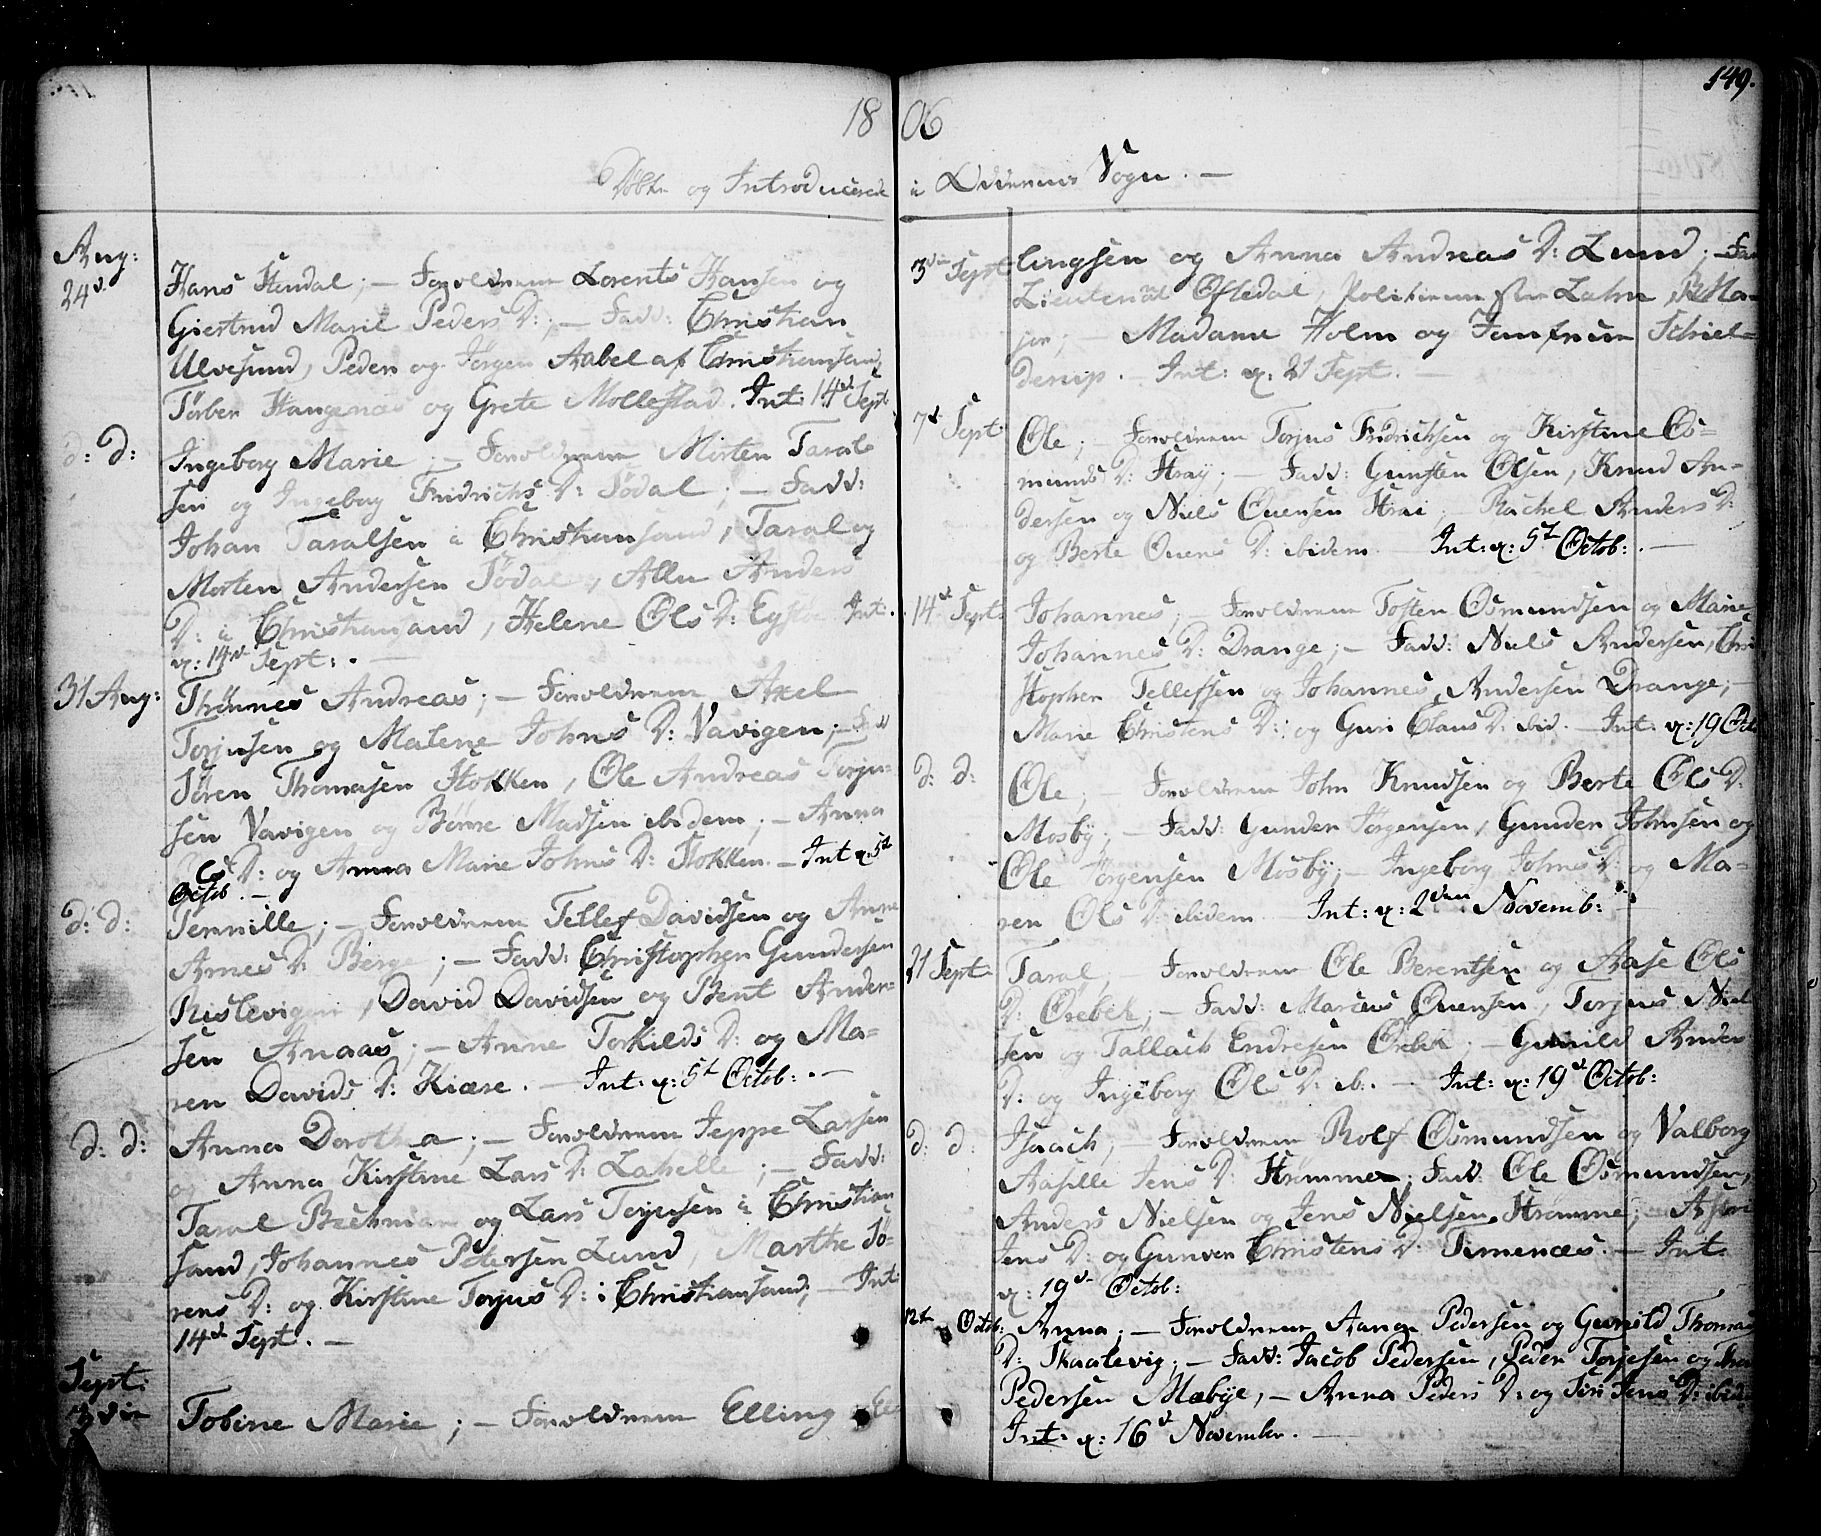 149.
18 06
Døbte og Introducerede i Oddernes Sogn. —
Aug:
24d. Hans Hendal; — Forældrene Lorents Hansen og
Giertrud Marie Peders D:, — Fadd: Christian
Ulvesund, Peder og Jørgen Aabel af Christiansand,
Torber Haugenæs og Grete Mollestad. Int: 14d Sept
d: d: Ingeborg Marie; — Forældrene Morten Taral
sen og Ingeborg Fridrichs D: Sødal; — Fadd:
Johan Taralsen i Christiansand, Taral og
Morten Andersen Sødal, Anders
D: i Christiansand, Helene Ols D: Int.
q: 14d Sept: . —
31 Aug: Thønnes Andreas; — Forældrene Axel
Torjusen og Malene Johns D: Vavigen; — Fadd
Søren Thomasen Stokken, Ole Andreas Torju-
sen Vavigen og Børre Madsen ibidem; — Anna
Ols D: og Anna Marie Johns D: Stokken. — Int q: 5te
Octob. —
d: d: Pernille; — Forældrene Tellef Davidsen og Anne
Arnes D: Berge; — Fadd: Christopher Gundersen
Ristevigen, David Davidsen og Bent Ander-
sen Anaas; — Anne Torkilds D: og Ma-
ren Davids D: Kiære. — Int: q: 5t Octob: . —
d: d: Anna Dorothea; — Forældrene Jeppe Larsen
og Anna Kirstine Lars D: Lahelle; — Fadd:
Taral Bechman og Lars Torjusen i Christian
sand, Johannes Petersen Lund, Marthe Sø-
rens D: og Kirstine Torjus D: i Christiansand; — Int
14d Sept. —
Sept:
3die Tobine Marie; — Forældrene Elling El
3die Sept lingsen og Anna Andreas D: Lund; — Fad
Lieutenat Øftedal, Politimester Lahn, Ma-
jor; — Madame Holm og Jomfrue Schiel-
derup. — Int: q: 21 Sept. —
7d Sept: Ole; — Forældrene Torjus Fridrichsen og Kirstine Os-
munds D: Straÿ; — Fadd: Gunsten Olsen, Knud An-
dersen og Niels Ouensen Strai; — Rachel Anders D:
og Berte Ouens D: ibidem. Int: q: 5t Octob: . —
14d Sept: Johannes; — Forældrene Tosten Osmundsen og Marie
Johannes D: Drange; — Fadd: Niels Andersen, Chri
stopher Tellefsen og Johannes Andersen Drange; —
Marie Christens D: og Guri Claus D: ibid. — Int: q: 19 Oct
d: d: Ole; — Forældrene John Knudsen og Berte Ols D:
Mosbÿ; — Fadd: Gunder Jørgensen, Gunder Johnsen og
Ole Jørgensen Mosbÿ; — Ingeborg Johns D: og Ma-
ren Ols D: ibidem. Int: q: 2den Novemb:
21 Sept: Taral; — Forældrene Ole Berentsen og Aase Ols
D: Orebek; — Fadd: Marcus Ouensen, Torjus Niel
sen og Tallach Endresen Orebek. — Gunild Anders
D: og Ingeborg Ols D: ib: . — Int: q: 19d Octob:
d: d: Isaach; — Forældrene Rolf Osmundsen og Valborg
Aasille Jens D: Strømme; Fadd: Ole Osmundsen,
Anders Nielsen og Jens Nielsen Strømme; —
Jens D: og Gunver Christens D: Timenæs. — Int.
q: 19d Octob:
12t Octob: Anna; — Forældrene Aanon Pedersen og Gunild Thomas
D: Skaalevig; — Fadd: Jacob Pedersen, Peder Torjesen og
Pedersen Mæbÿe, — Anna Peders D: og Siri Jens D: ibid
Int: q: 16d November. —